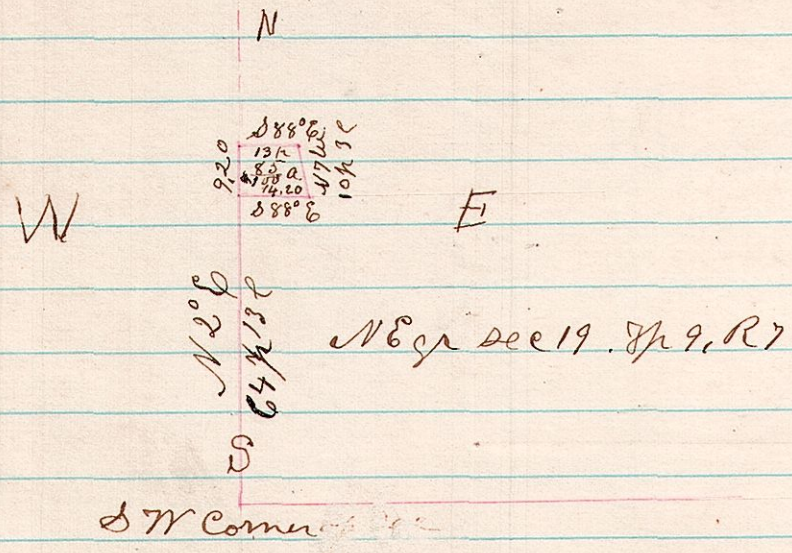 N
S 88° E
9.20
13 p
85 a
100
14.20
N 7 W
10 p 3 l
S 88° E
W
E
N 2° E
64 p 13 l
N E qr sec 19. Tp 9, R 7
S
S W Corner